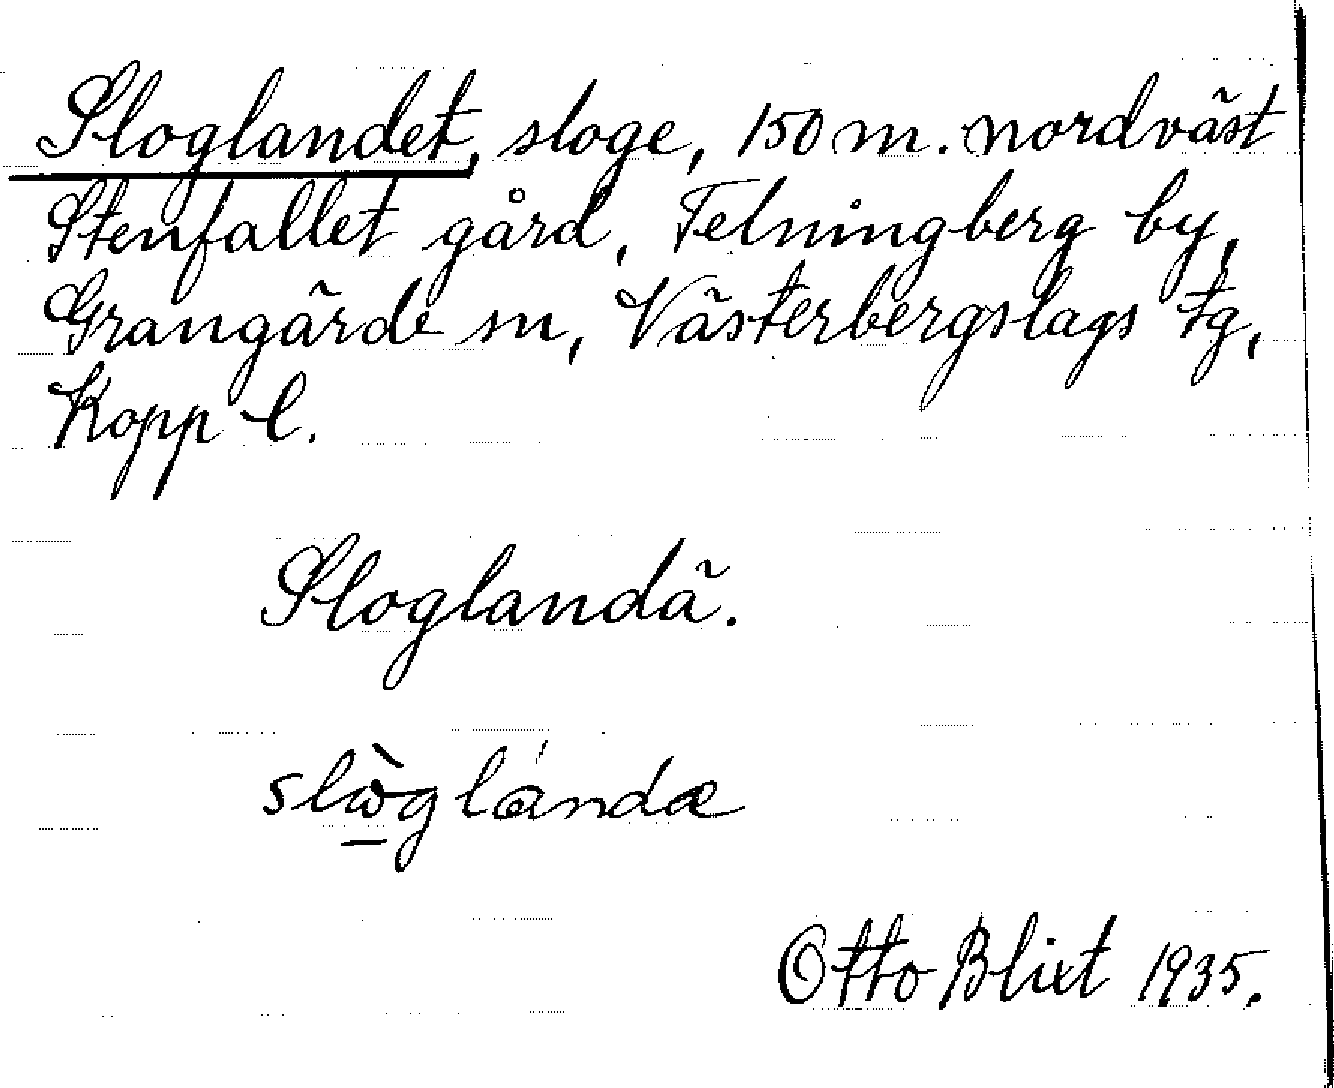 Sloglandet, sloge, 150 m. nordväst
Stenfallet gård, Telningberg by,
Grangärde sn, Västerbergslags tg,
Kopp l.
Sloglandä.
slòglándæ
Otto Blixt 1935.